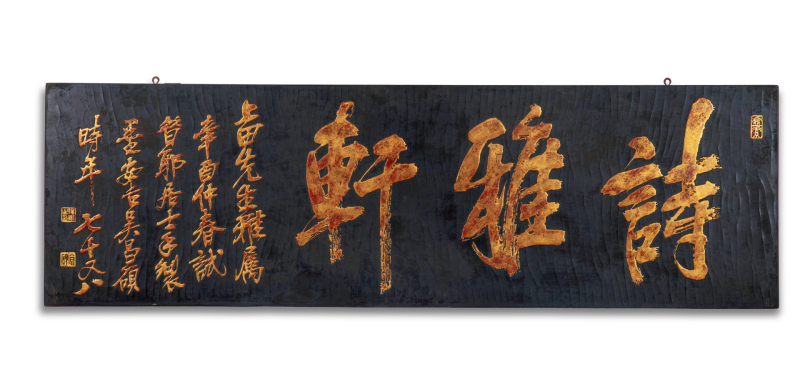 詩雅軒
上田先生雅屬
辛酉仲春試
居士手製
墨安吉吳昌碩
時年七十又八